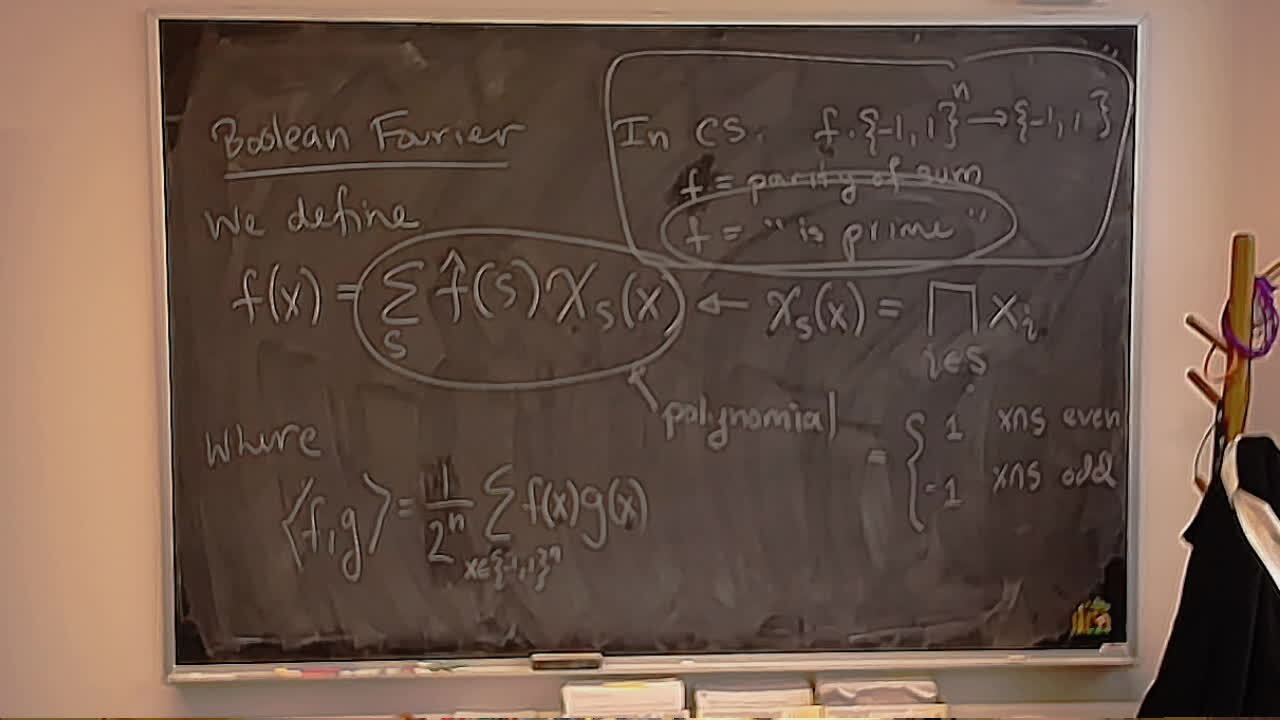 Boolean Fourier
In CS. f: {-1, 1}ⁿ → {-1, 1}
f = parity of sum
f = "is prime"
We define
f(x) = ∑_S f̂(S) χ_S(x) ← χ_S(x) = ∏_{i∈S} x_i
polynomial
= { 1 x∩S even
-1 x∩S odd
Where
⟨f,g⟩ = 1/2ⁿ ∑_{x∈{-1,1}ⁿ} f(x)g(x)